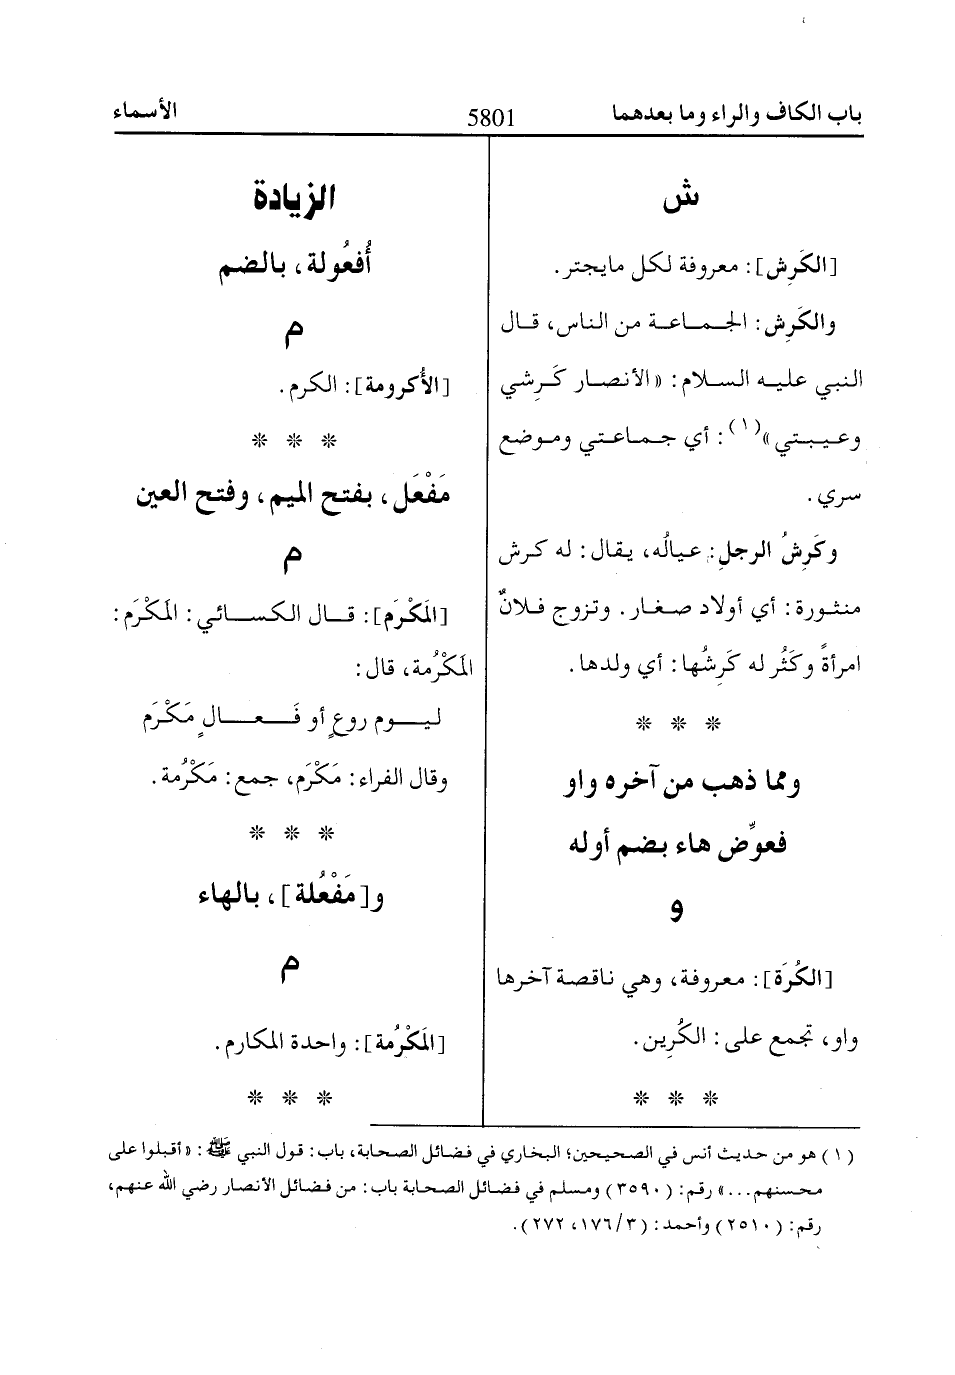 باب الكاف والراء وما بعدهما
5801
الأسماء
ش
[الكَرِش]: معروفة لكل مايجتر.
والكَرِش: الجماعة من الناس، قال
النبي عليه السلام: «الأنصار كَرِشي
وعيبتي»(١): أي جماعتي وموضع
سري.
وكَرِشُ الرجلِ: عيالُه، يقال: له كرش
منثورة: أي أولاد صغار. وتزوج فلانٌ
امرأةً وكَثُر له كَرِشُها: أي ولدها.
* * *
ومما ذهب من آخره واو
فعوِّض هاء بضم أوله
و
[الكُرَة]: معروفة، وهي ناقصة آخرها
واو، تجمع على: الكُرِين.
* * *
الزيادة
أُفعُولة، بالضم
م
[الأُكرومة]: الكرم.
* * *
مَفْعَل، بفتح الميم، وفتح العين
م
[المَكْرَم]: قال الكسائي: المَكْرَم:
المَكْرُمة، قال:
ليوم روعٍ أو فَعالٍ مَكْرَم
وقال الفراء: مَكْرَم، جمع: مَكْرُمة.
* * *
و[مَفْعُلة]، بالهاء
م
[المَكْرُمة]: واحدة المكارم.
* * *
(١) هو من حديث أنس في الصحيحين؛ البخاري في فضائل الصحابة، باب: قول النبي ﷺ: «أقبلوا على
محسنهم...» رقم: (٣٥٩٠) ومسلم في فضائل الصحابة باب: من فضائل الأنصار رضي الله عنهم،
رقم: (٢٥١٠) وأحمد: (٣/١٧٦، ٢٧٢).